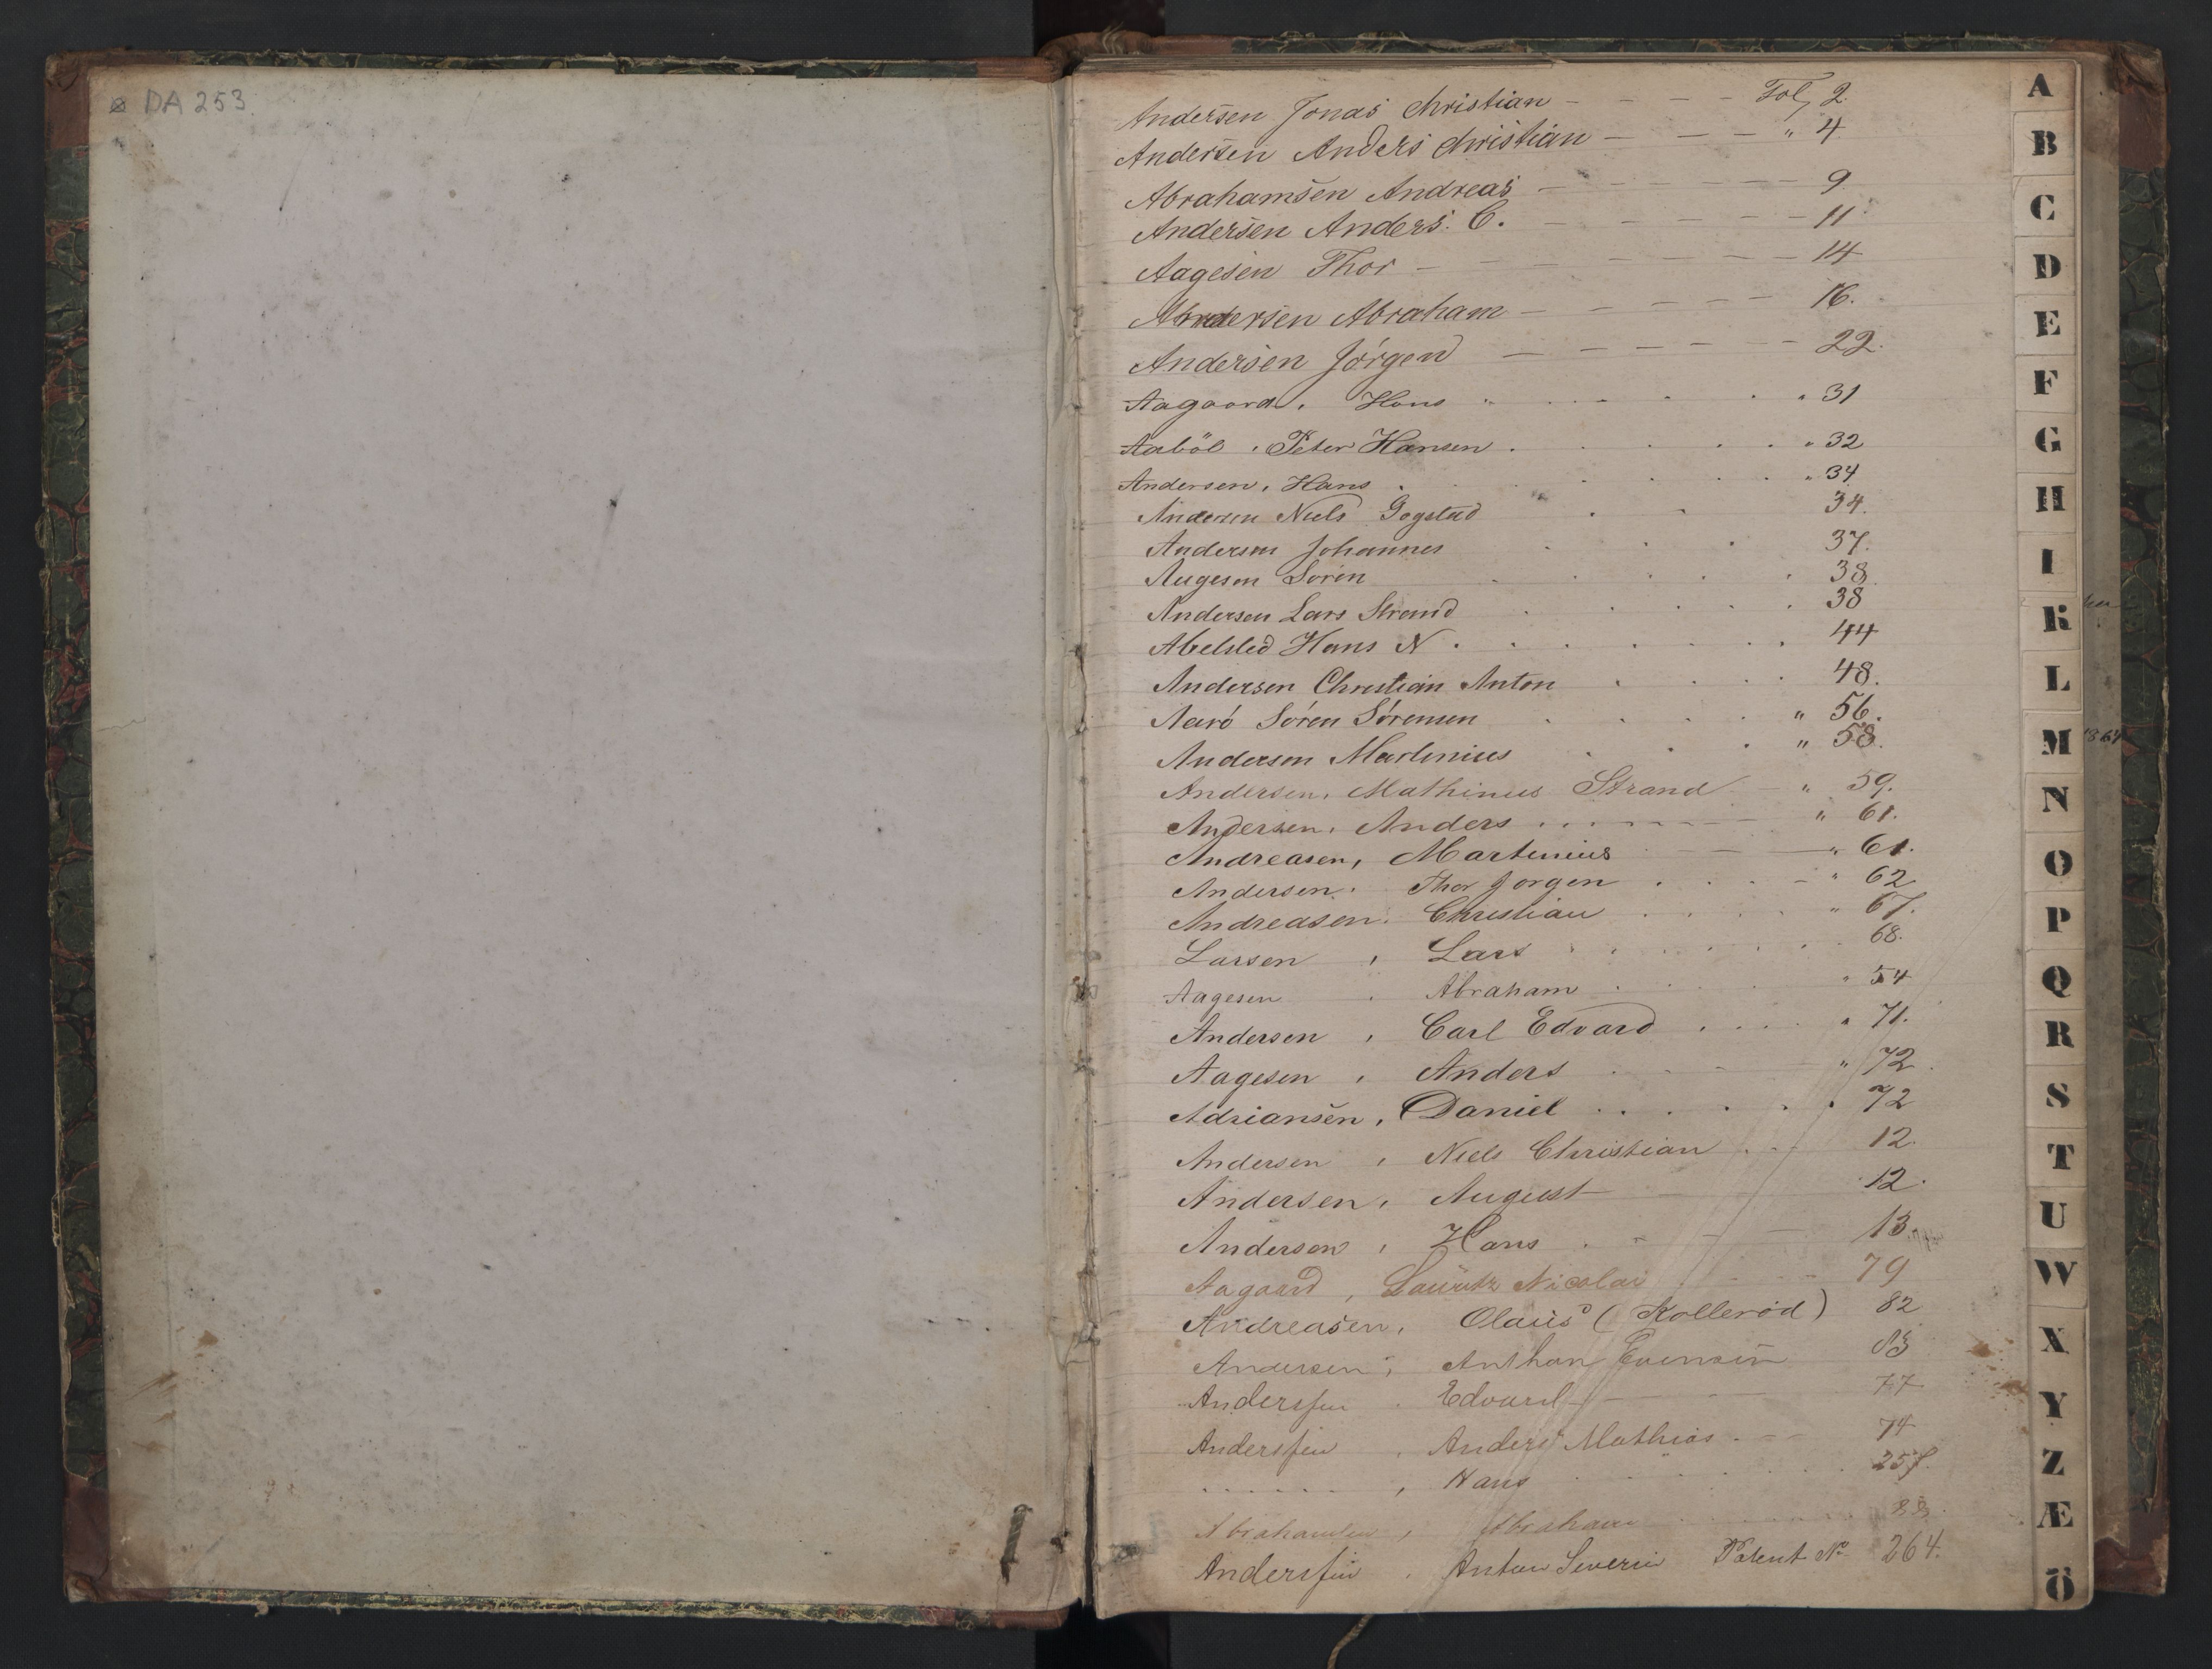 DA 253.
Andersen Jonas Christian - - - - Fol, 2.
Andersen Anders Christian - - - " 4
Abrahamsen Andreas - - - - - 9
Andersen Anders. C. - - - - - 11
Aagesen Thor - - - - - - 14
Andersen Abraham - - - - - 16.
Andersen Jörgen - - - - - - 22.
Aagaard, Hans " . . . . . " 31
Aaböl, Peter Hansen . . . . . " 32
Andersen, Hans . . . . . " 34
Andersen Niels Gogstad . . 34.
Andersen Johannes . . . 37.
Aagesen Sören . . . . . 38.
Andersen Lars Strand . . . . . 38
Abelsted Hans N . . . . . . 44
Andersen Christian Anton . . . . 48.
Aarö Sören Sörensen . . . . " 56.
Andersen Martinius . . . " 58.
Andersen, Mathinus Strand - " 59.
Andersen, Anders . . . - - - " 61.
Andreasen, Martinius - - " 61.
Andersen, Thor Jorgen . . . - " 62
Andreasen, Christian . . . . " 67.
Larsen, Lars . . . . . . 68.
Aagesen, Abraham . . . . " 54
Andersen, Carl Edvard . . . . " 71.
Aagesen, Anders . . . - " 72.
Adriansen, Daniel . . . . . . 72
Andersen, Niels Christian . . - 12.
Andersen, August - - 12.
Andersen, Hans . - - - 13.
Aagaard, Lauritz Nicolai . - - - 79
Andreasen, Olaus (Kolleröd) 82
Andersen, Anthon Evensen 83
Anderssen, Edvard - - - - 77
Anderssen, Anders Mathias . - - 74
. . . . . . , Hans . . . . . . 257.
Abrahamsen, Abraham . . . . . 88.
Anderssen, Anton Severin Patent No 264.
A
B
C
D
E
F
G
H
I
K
L
M
N
O
P
Q
R
S
T
U
W
X
Y
Z
Æ
Ö
1864